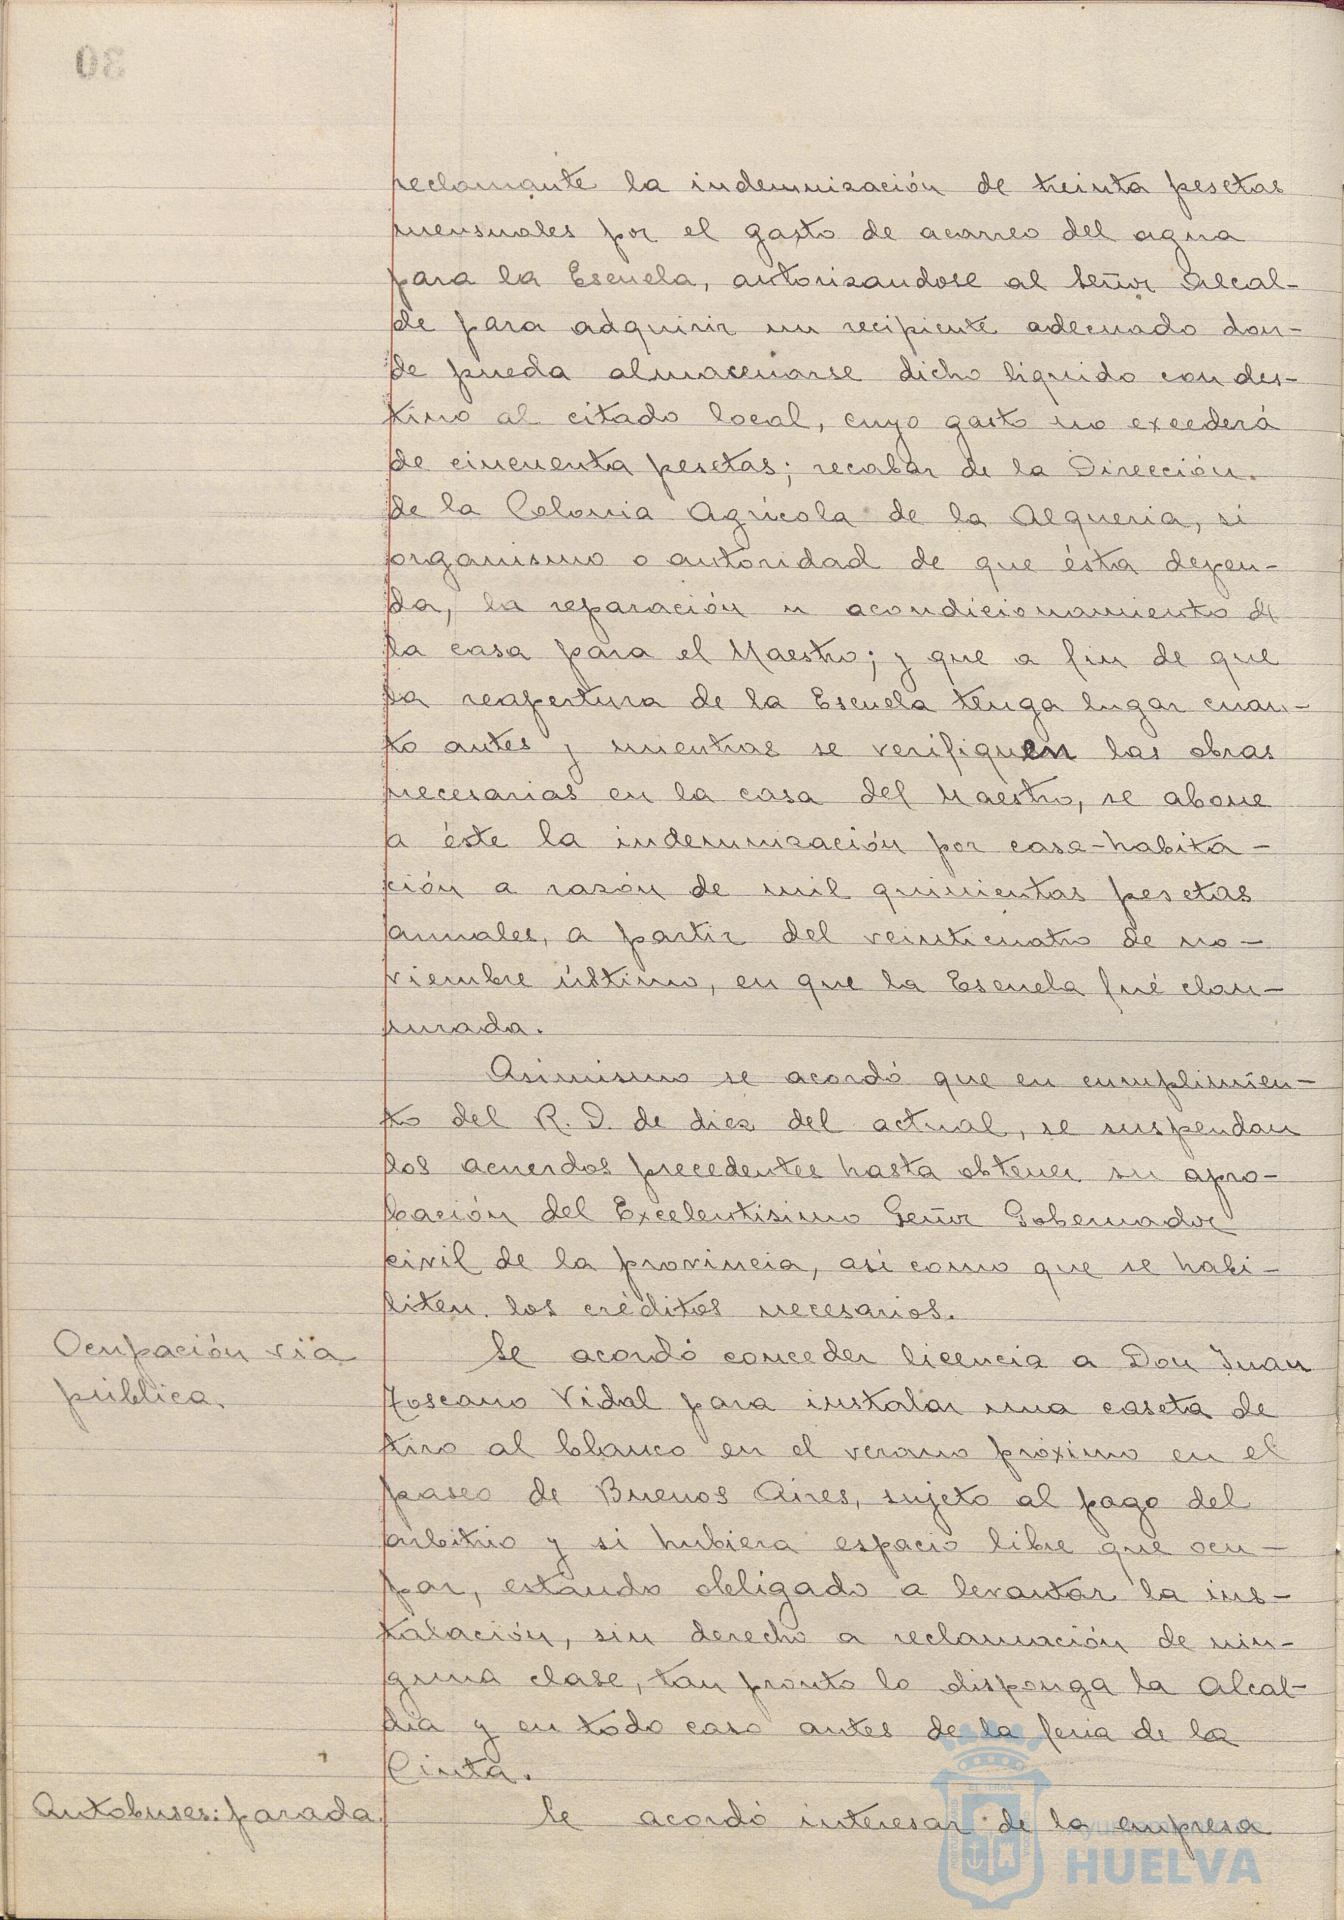 30
reclamante la indemnización de treinta pesetas
mensuales por el gasto de acarreo del agua
para la Escuela, autorizandose al Señor Alcal-
de para adquirir un recipiente adecuado don-
de pueda almacenarse dicho líquido con des-
tino al citado local, cuyo gasto no excederá
de cincuenta pesetas; recabar de la Dirección
de la Colonia Agrícola de la Alqueria, si
organismo o autoridad de que ésta depen-
da, la reparación u acondicionamiento de
la casa para el Maestro; y que a fin de que
la reapertura de la Escuela tenga lugar cuan-
to antes y mientras se verifiquen las obras
necesarias en la casa del Maestro, se abone
a éste la indemnización por casa-habita-
ción a razón de mil quinientas pesetas
anuales, a partir del veinticuatro de no-
viembre último, en que la Escuela fué clau-
surada.
Asimismo se acordó que en cumplimien-
to del R. D. de diez del actual, se suspendan
los acuerdos precedentes hasta obtener su apro-
bación del Excelentísimo Señor Gobernador
civil de la provincia, asi como que se habi-
liten los créditos necesarios.
Ocupación vía
pública.
Se acordó conceder licencia a Don Juan
Toscano Vidal para instalar una caseta de
tiro al blanco en el verano próximo en el
paseo de Buenos Aires, sujeto al pago del
arbitrio y si hubiera espacio libre que ocu-
par, estando obligado a levantar la ins-
talación, sin derecho a reclamación de nin-
guna clase, tan pronto lo disponga la Alcal-
día y en todo caso antes de la feria de la
Cinta.
Autobuses: parada.
Se acordó interesar de la empresa
HUELVA